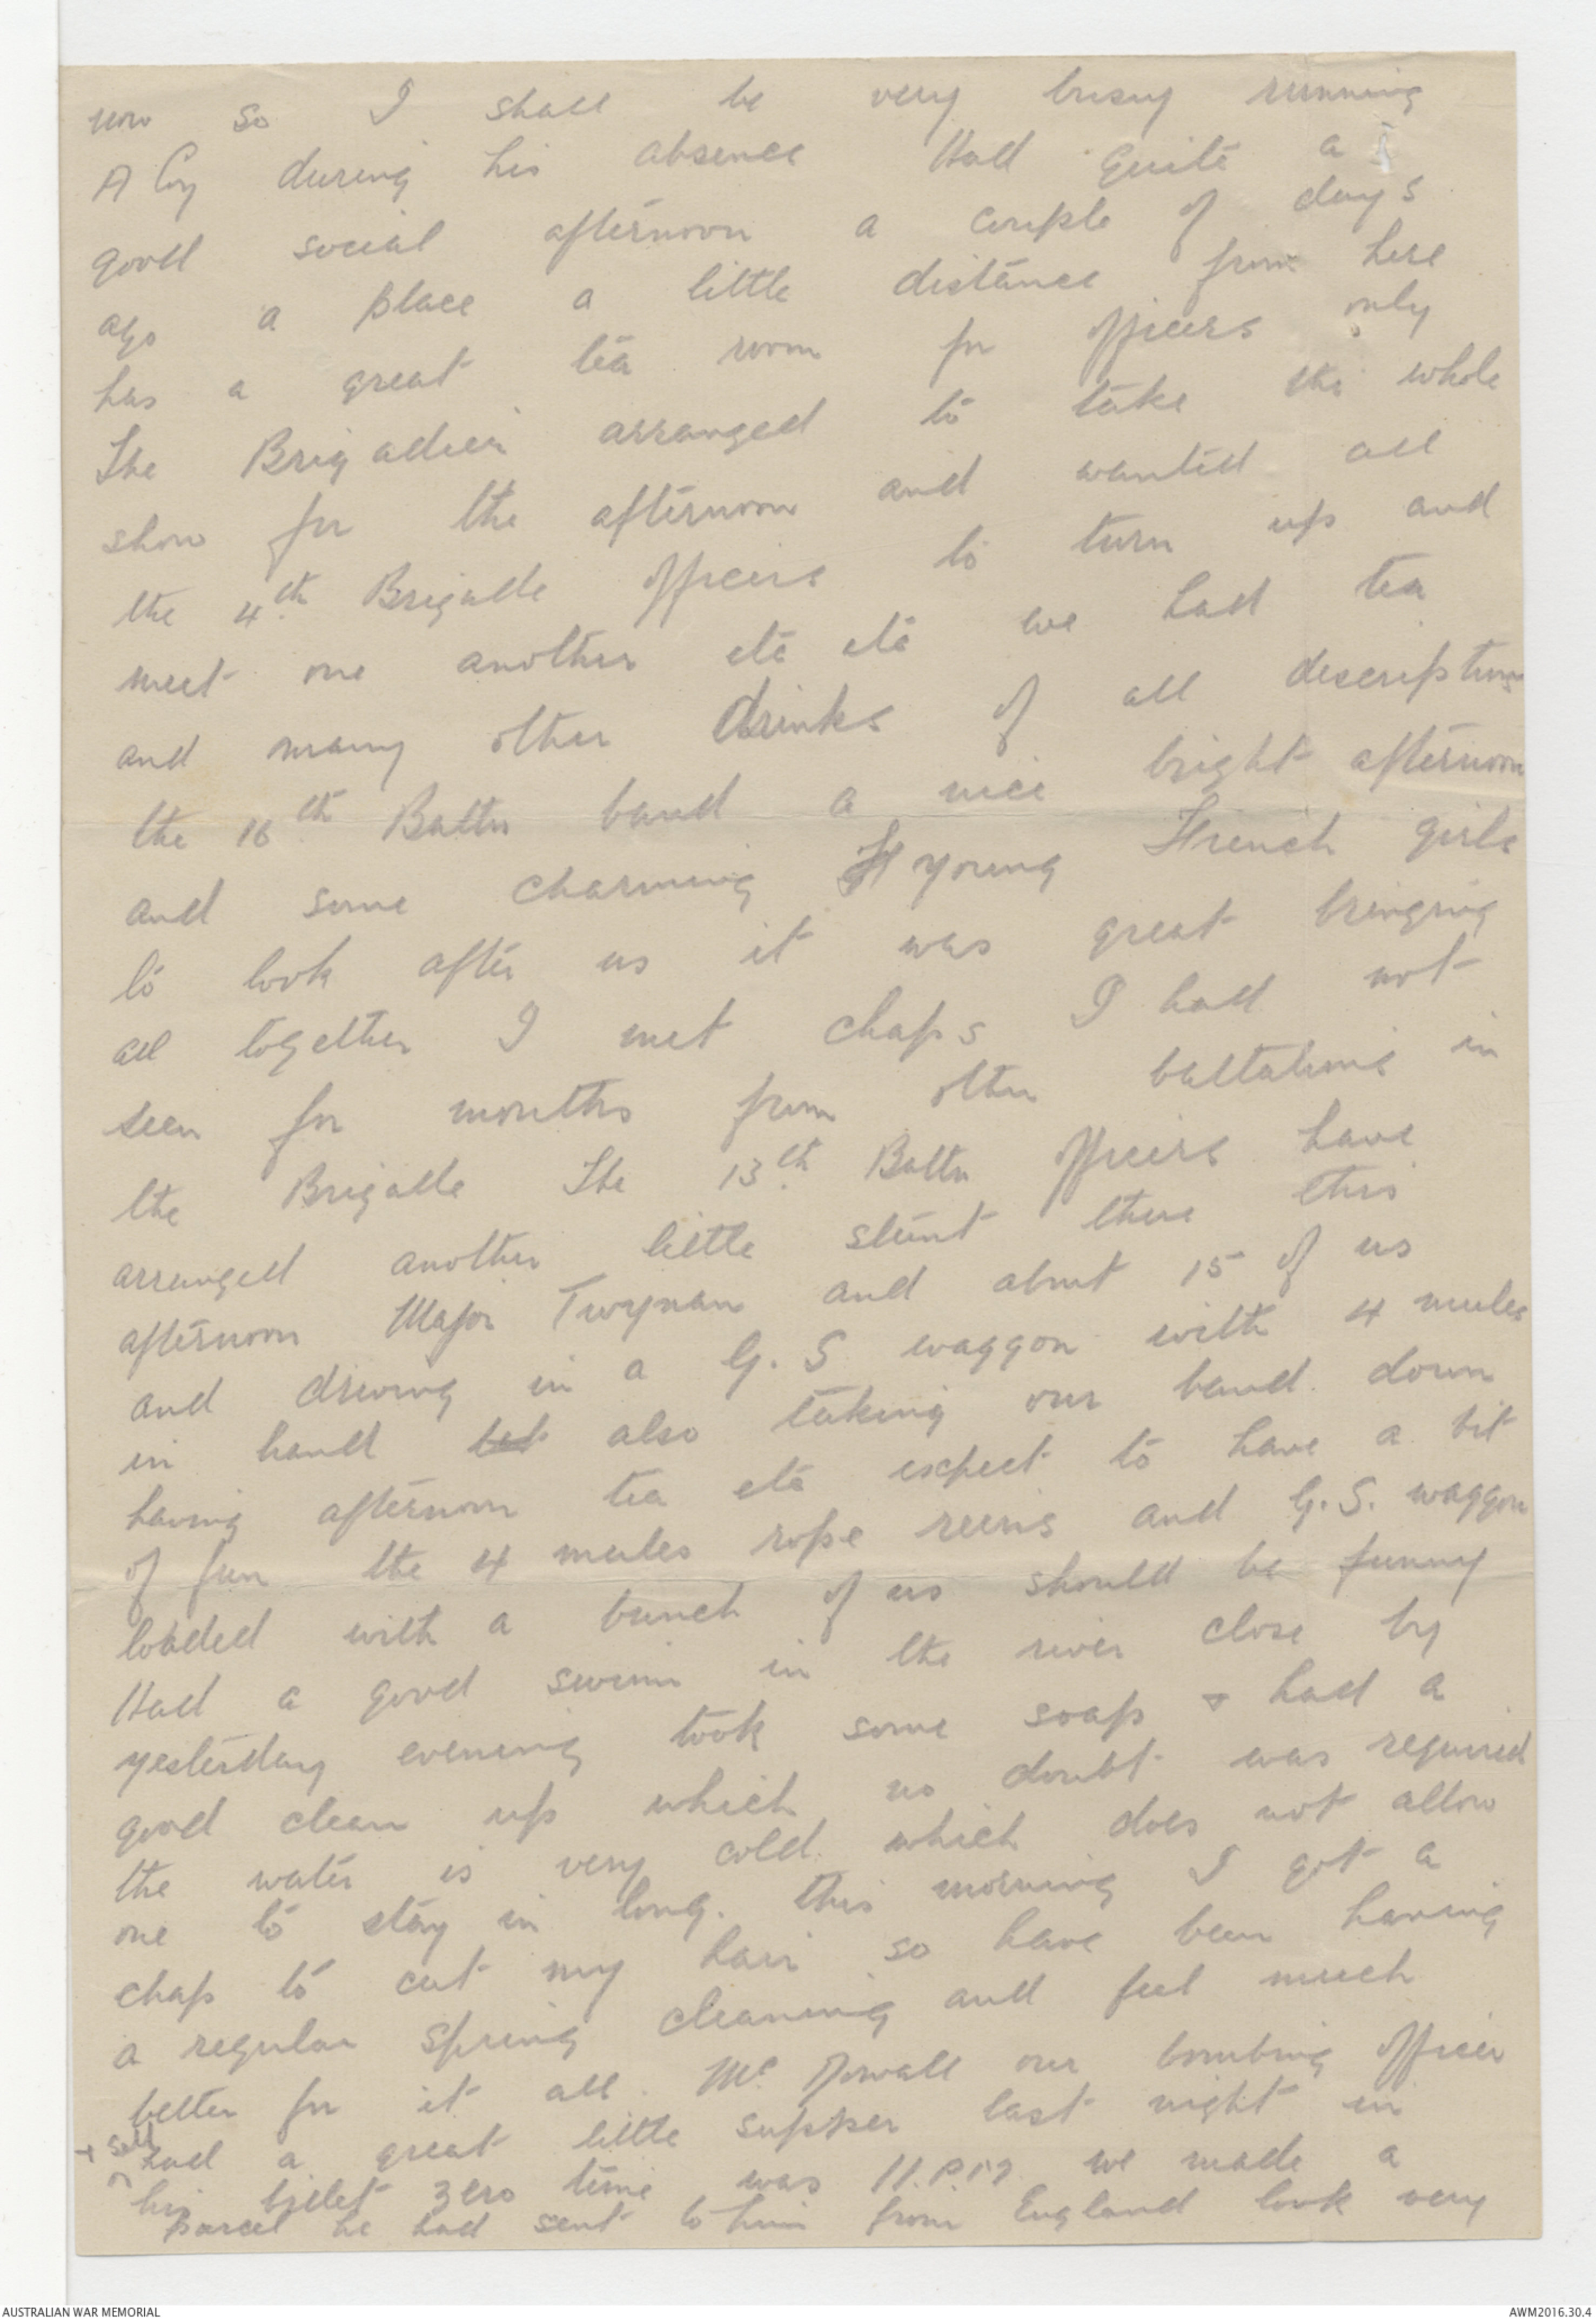 now so I shall be very busy running
A Coy during his absence Had quite a
good social afternoon a couple of days
ago a place a little distance from here
has a great tea room for officers only
The Brigadier arranged to take the whole
show for the afternoon and wanted all
the 4th Brigade officers to turn up and
meet one another etc etc we had tea
and many other drinks of all descriptions
the 16th Battn band a nice bright afternoon
and some charming young French girls
to look after us it was great bringing
all together I met chaps I had not
seen for months from other battalions in
the Brigade The 13th Battn officers have
arranged another little stunt there this
afternoon Major Twynam and about 15 of us
and driving in a G.S waggon with 4 mules
in hand also taking our band down
having afternoon tea etc expect to have a bit
of fun the 4 mules rope reins and G.S. waggon
loaded with a bunch of us should be funny
Had a good swim in the river close by
yesterday evening took some soap & had a
good clean up which no doubt was required
the water is very cold which does not allow
one to stay in long. This morning I got a
chap to cut my hair so have been having
a regular spring cleaning and feel much
better for it all. McDowall our bombing officer
+ self
had a great little supper last night in
his billet zero time was 11.pm we made a
parcel he had sent to him from England look very
AUSTRALIAN WAR MEMORIAL
AWM2016.30.4